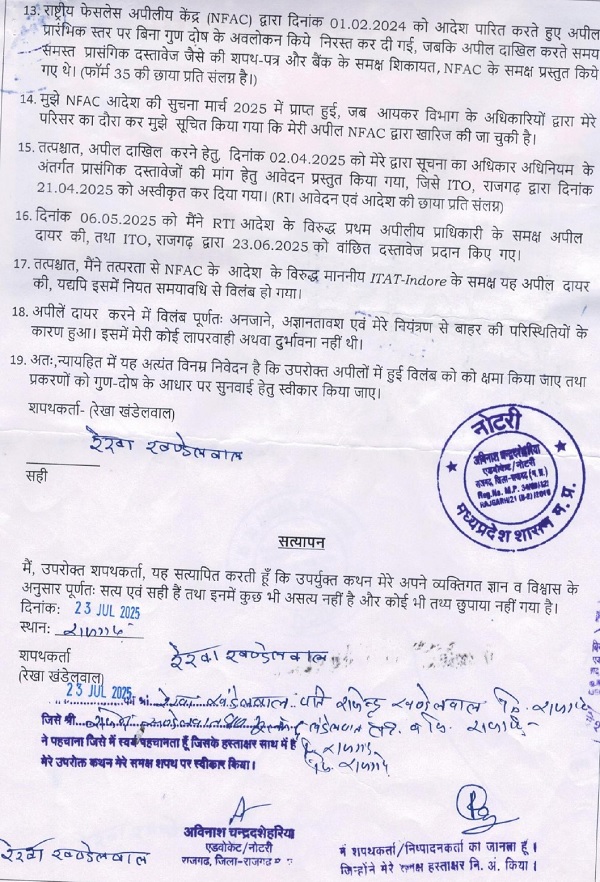 13. राष्ट्रीय फेसलेस अपीलीय केंद्र (NFAC) द्वारा दिनांक 01.02.2024 को आदेश पारित करते हुए अपील
प्रारंभिक स्तर पर बिना गुण दोष के अवलोकन किये निरस्त कर दी गई, जबकि अपील दाखिल करते समय
समस्त प्रासंगिक दस्तावेज जैसे की शपथ-पत्र और बैंक के समक्ष शिकायत, NFAC के समक्ष प्रस्तुत किये
गए थे। (फॉर्म 35 की छाया प्रति संलग्न है।)
14. मुझे NFAC आदेश की सुचना मार्च 2025 में प्राप्त हुई, जब आयकर विभाग के अधिकारियों द्वारा मेरे
परिसर का दौरा कर मुझे सूचित किया गया कि मेरी अपील NFAC द्वारा खारिज की जा चुकी है।
15. तत्पश्चात, अपील दाखिल करने हेतु, दिनांक 02.04.2025 को मेरे द्वारा सूचना का अधिकार अधिनियम के
अंतर्गत प्रासंगिक दस्तावेजों की मांग हेतु आवेदन प्रस्तुत किया गया, जिसे ITO, राजगढ़ द्वारा दिनांक
21.04.2025 को अस्वीकृत कर दिया गया। (RTI आवेदन एवं आदेश की छाया प्रति संलग्न)
16. दिनांक 06.05.2025 को मैंने RTI आदेश के विरुद्ध प्रथम अपीलीय प्राधिकारी के समक्ष अपील
दायर की, तथा ITO, राजगढ़ द्वारा 23.06.2025 को वांछित दस्तावेज प्रदान किए गए।
17. तत्पश्चात, मैंने तत्परता से NFAC के आदेश के विरुद्ध माननीय ITAT-Indore के समक्ष यह अपील दायर
की, यद्यपि इसमें नियत समयावधि से विलंब हो गया।
18. अपीलें दायर करने में विलंब पूर्णतः अनजाने, अज्ञानतावश एवं मेरे नियंत्रण से बाहर की परिस्थितियों के
कारण हुआ। इसमें मेरी कोई लापरवाही अथवा दुर्भावना नहीं थी।
19. अतः,न्यायहित में यह अत्यंत विनम्र निवेदन है कि उपरोक्त अपीलों में हुई विलंब को को क्षमा किया जाए तथा
प्रकरणों को गुण-दोष के आधार पर सुनवाई हेतु स्वीकार किया जाए।
शपथकर्ता- (रेखा खंडेलवाल)
रेखा खण्डेलवाल
सही
नोटरी
अविनाश चन्द्रदशेहरिया
एडवोकेट/नोटरी
मध्यप्रदेश शासन म. प्र.
सत्यापन
मैं, उपरोक्त शपथकर्ता, यह सत्यापित करती हूँ कि उपर्युक्त कथन मेरे अपने व्यक्तिगत ज्ञान व विश्वास के
अनुसार पूर्णतः सत्य एवं सही हैं तथा इनमें कुछ भी असत्य नहीं है और कोई भी तथ्य छुपाया नहीं गया है।
दिनांक: 23 JUL 2025
स्थान: राजगढ़
शपथकर्ता रेखा खण्डेलवाल
(रेखा खंडेलवाल)
23 JUL 2025 रेखा खंडेलवाल पति राजेन्द्र खण्डेलवाल नि. राजगढ़
जिसे श्री
ने पहचाना जिसे में स्वयं पहचानता हूँ जिसके हस्ताक्षर साथ में है
मेरे उपरोक्त कथन मेरे समक्ष शपथ पर स्वीकार किया।
अविनाश चन्द्रदशेहरिया
एडवोकेट/नोटरी
राजगढ, जिला-राजगढ
रेखा खण्डेलवाल
में शपथकर्ता/निष्पादनकर्ता का जानता हूँ।
जिन्होने मेरे समक्ष हस्ताक्षर नि. अं. किया।